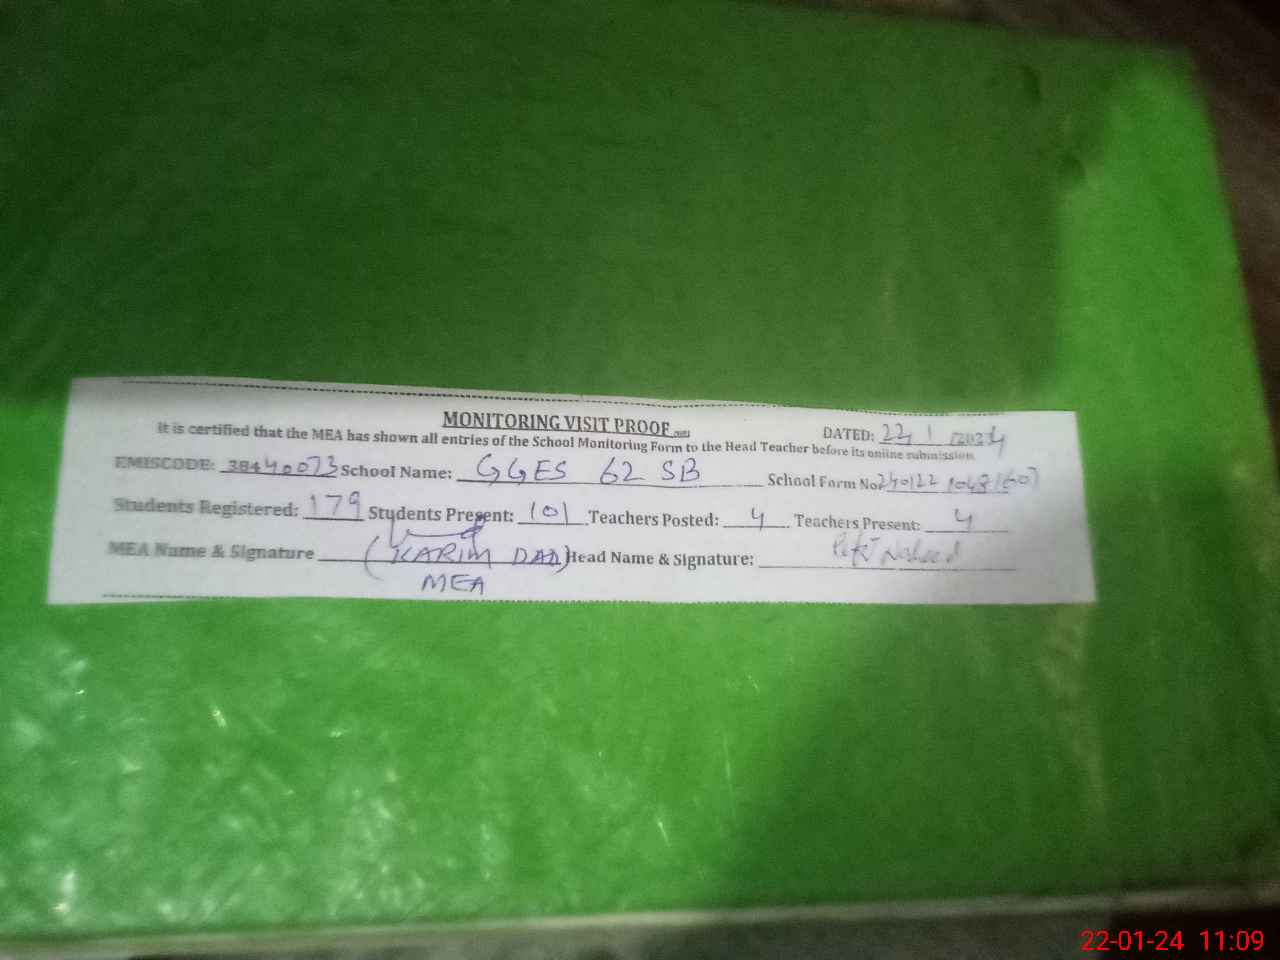 MONITORING VISIT PROOF
DATED: 22/1/2024
it is certified that the MEA has shown all entries of the School Monitoring Form to the Head Teacher before its online submission.
EMISCODE: 38440073 School Name: GGES 62 SB School Form No 240122
Students Registered: 179 Students Present: 101 Teachers Posted: 4 Teachers Present: 4
MEA Name & Signature (KARIM DAD) Head Name & Signature: Naheed
MEA
22-01-24 11:09